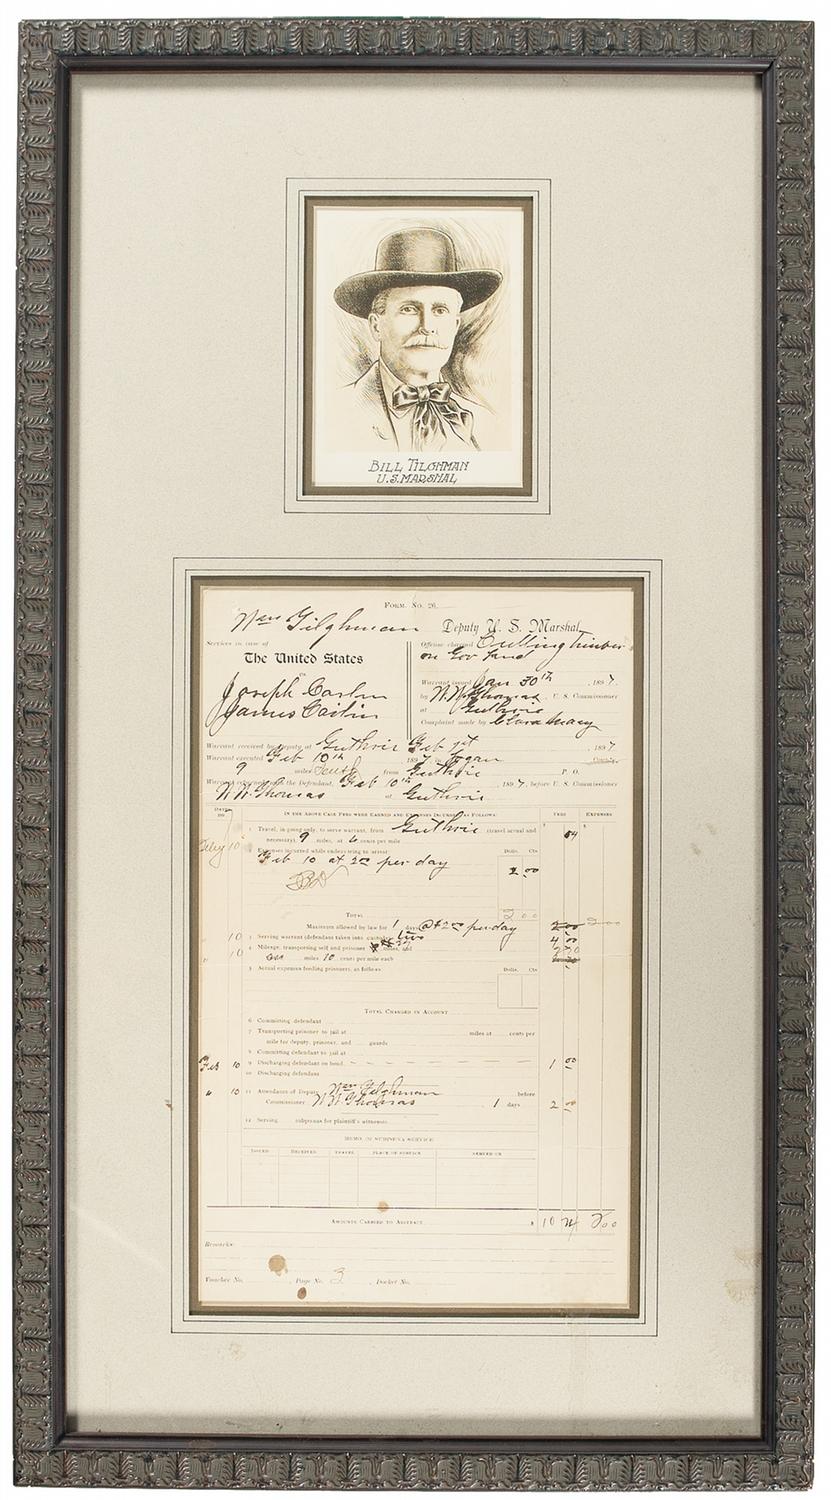 BILL TILGHMAN
U.S. MARSHAL
FORM No. 26.
Wm Tilghman Deputy U. S. Marshal
Services in case of
The United States
vs
Joseph
James
Offense charged Cutting Timber
on Gov Land
Warrant issued Jan 30th, 1897.
by N. N. Thomas, U. S. Commissioner
at Guthrie
Complaint made by
Warrant received by deputy at Guthrie Feb 1st, 1897
Warrant executed Feb 10th 1897 in Logan County
9 miles from Guthrie P. O.
Warrant returned with the Defendant, Feb 10th, 1897, before U. S. Commissioner
Thomas at Guthrie
IN THE ABOVE CASE FEES WERE EARNED AND EXPENSES INCURRED AS FOLLOWS: FEES EXPENSES
1 Travel, in going only, to serve warrant, from Guthrie (travel actual and
necessary), 9 miles, at 6 cents per mile 54
2 Expenses incurred while endeavoring to arrest: Dolls. Cts
Feb 10 at 2 00 per day 2 00
TOTAL 2 00
Maximum allowed by law for 1 days @ $2 00 per day 2 00 2 00
10 3 Serving warrant (defendant taken into custody) two 4 00
10 4 Mileage, transporting self and prisoner miles, and
miles 10 cents per mile each
5 Actual expense feeding prisoners, as follows: Dolls. Cts
TOTAL CHARGED IN ACCOUNT
6 Committing defendant
7 Transporting prisoner to jail at miles at cents per
mile for deputy, prisoner, and guards
8 Committing defendant to jail at
Feb 10 9 Discharging defendant on bond 1 00
10 Discharging defendant
" 10 11 Attendance of Deputy Wm Tilghman before
Commissioner Thomas 1 days 2 00
12 Serving subpœnas for plaintiff's witnesses
MEMO. OF SUBPŒNA SERVICE
ISSUED RECEIVED TRAVEL PLACE OF SERVICE SERVED ON
AMOUNTS CARRIED TO ABSTRACT $ 10 2 00
Remarks:
Voucher No. , Page No. 3 , Docket No.